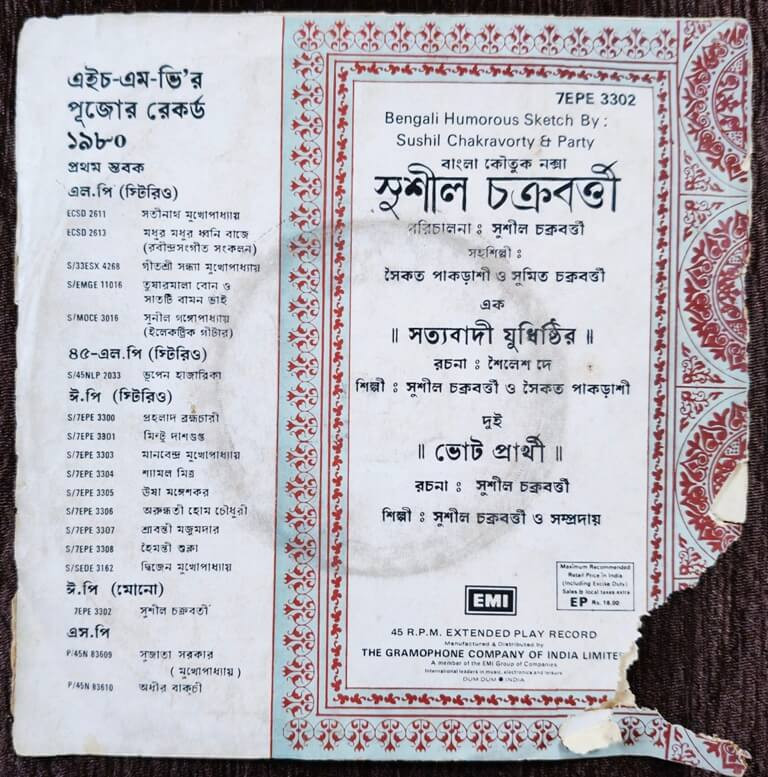 এইচ-এম-ভি'র
পূজোর রেকর্ড
১৯৮০
প্রথম স্তবক
এল.পি (স্টিরিও)
ECSD 2611 সতীনাথ মুখোপাধ্যায়
ECSD 2613 মধুর মধুর ধ্বনি বাজে
(রবীন্দ্রসংগীত সংকলন)
S/33ESX 4268 গীতশ্রী সন্ধ্যা মুখোপাধ্যায়
S/EMGE 11016 তুষারমালা বোন ও
সাতটি বামন ভাই
S/MOCE 3016 সুনীল গঙ্গোপাধ্যায়
(ইলেকট্রিক গীটার)
৪৫-এল.পি (স্টিরিও)
S/45NLP 2033 ভূপেন হাজারিকা
ঈ.পি (স্টিরিও)
S/7EPE 3300 প্রহলাদ ব্রহ্মচারী
S/7EPE 3301 মিন্টু দাশগুপ্ত
S/7EPE 3303 মানবেন্দ্র মুখোপাধ্যায়
S/7EPE 3304 শ্যামল মিত্র
S/7EPE 3305 উষা মঙ্গেশকর
S/7EPE 3306 অরুন্ধতী হোম চৌধুরী
S/7EPE 3307 শ্রাবন্তী মজুমদার
S/7EPE 3308 হৈমন্তী শুক্লা
S/SEDE 3162 দ্বিজেন মুখোপাধ্যায়
ঈ.পি (মোনো)
7EPE 3302 সুশীল চক্রবর্তী
এস.পি
P/45N 83609 সুজাতা সরকার
(মুখোপাধ্যায়)
P/45N 83610 অধীর বাক্‌চী
7EPE 3302
Bengali Humorous Sketch By :
Sushil Chakravorty & Party
বাংলা কৌতুক নক্সা
সুশীল চক্রবর্ত্তী
পরিচালনা : সুশীল চক্রবর্ত্তী
সহশিল্পী :
সৈকত পাকড়াশী ও সুমিত চক্রবর্ত্তী
এক
॥ সত্যবাদী যুধিষ্ঠির ॥
রচনা : শৈলেশ দে
শিল্পী : সুশীল চক্রবর্ত্তী ও সৈকত পাকড়াশী
দুই
॥ ভোট প্রার্থী ॥
রচনা : সুশীল চক্রবর্ত্তী
শিল্পী : সুশীল চক্রবর্ত্তী ও সম্প্রদায়
EMI
Maximum Recommended
Retail Price in India
(Including Excise Duty)
Sales & local taxes extra
EP Rs. 18.00
45 R.P.M. EXTENDED PLAY RECORD
Manufactured & Distributed by
THE GRAMOPHONE COMPANY OF INDIA LIMITE
A member of the EMI Group of Companies
International leaders in music, electronics and leisure
DUM DUM ● INDIA